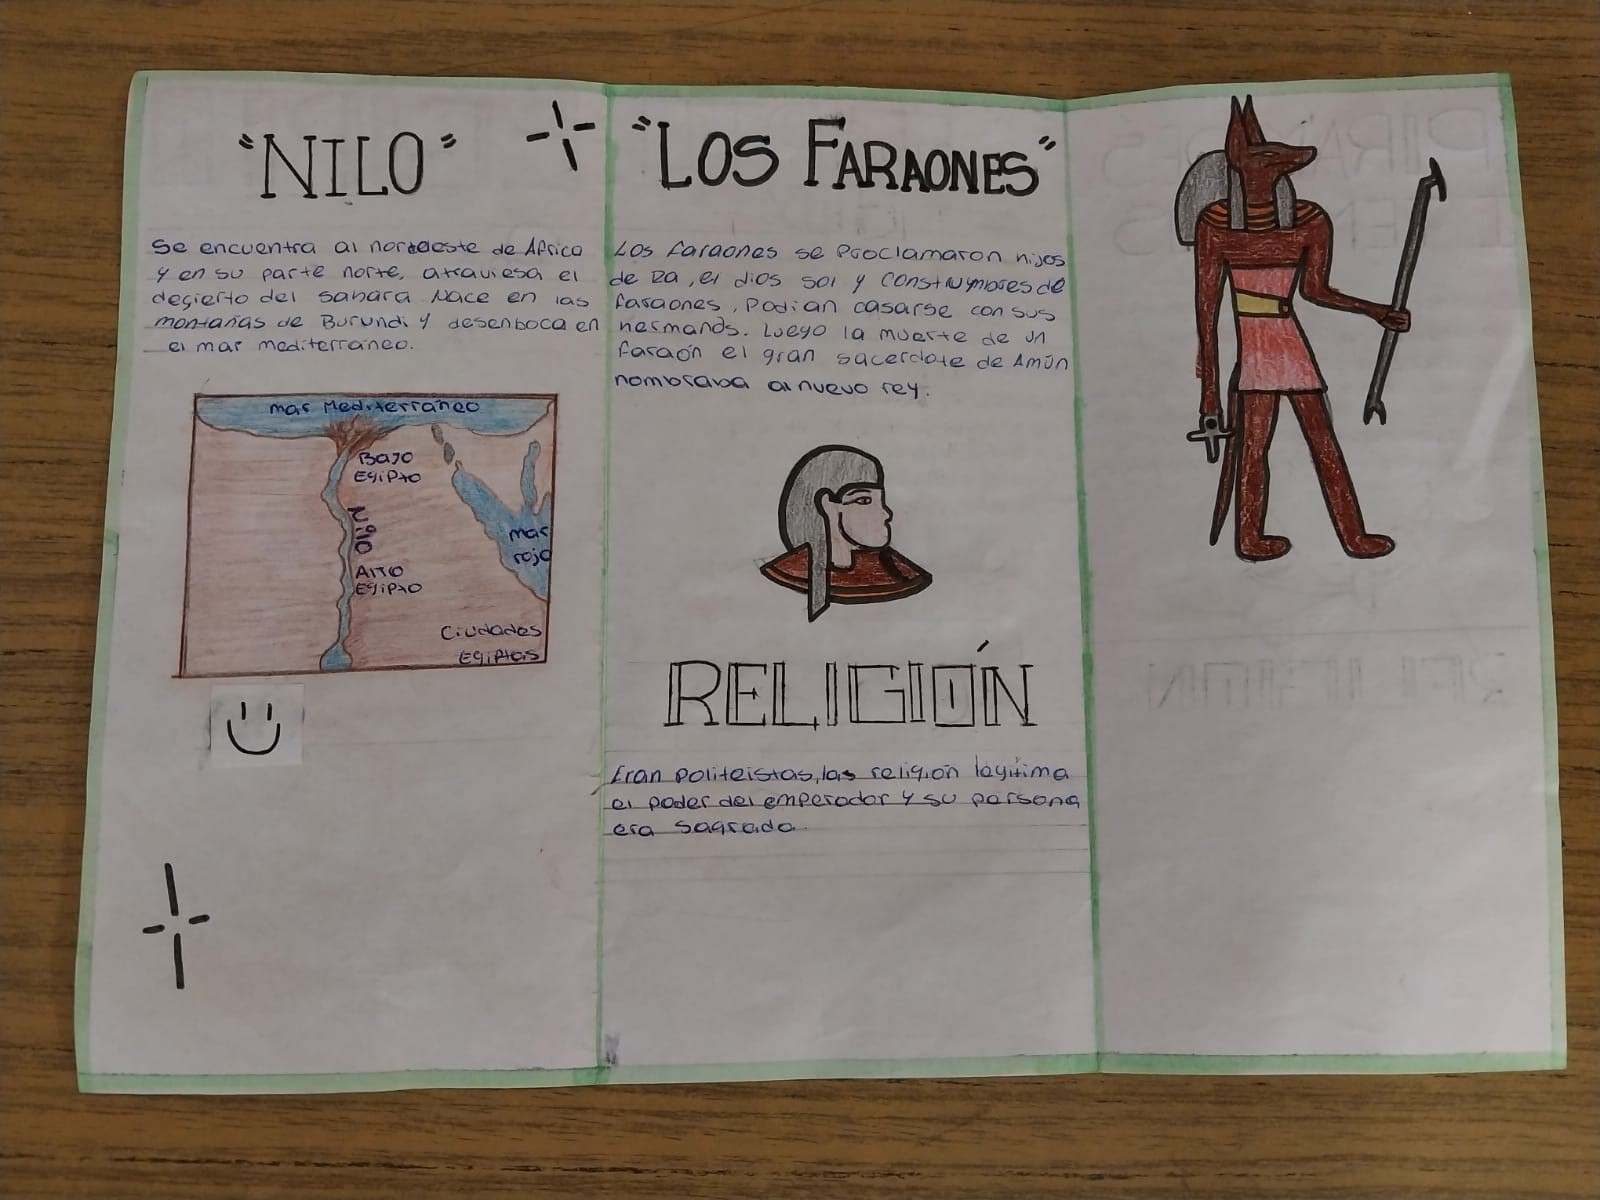 "NILO"
Se encuentra al nordeste de Africa
y en su parte norte, atraviesa el
decierto del sahara. Nace en las
montañas de Burundi y desenboca en
el mar mediterraneo.
mar Mediterráneo
Bajo
Egipto
Nilo
Alto
Egipto
mar
rojo
Ciudades
Egiptas
"LOS FARAONES"
Los faraones se proclamaron hijos
de Ra, el dios sol y construmbres de
faraones, Podian casarse con sus
hermands. Luego la muerte de un
faraón el gran sacerdote de Amún
nombraba al nuevo rey.
RELIGIÓN
Eran politeistas, las religión légitima
el poder del emperador y su persona
era sagrada.
PIRAMIDES
RELIGION